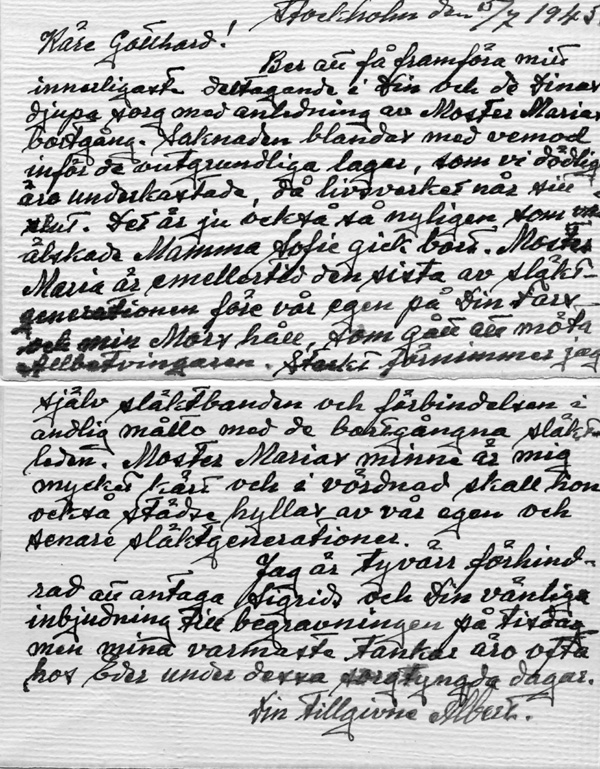 Stockholm den 5/7 1945.
Käre Gotthard!
Ber att få framföra mitt
innerligaste deltagande i Din och de Dinas
djupa sorg med anledning av Moster Marias
bortgång. Saknaden blandas med vemod
inför de outgrundliga lagar, som vi dödlig
äro underkastade, då livsverket når sitt
slut. Det är ju också så nyligen som
älskade Mamma Sofie gick bort. Moster
Maria är emellertid den sista av släkt-
generationen före vår egen på Din Fars
och min Mors håll, som gått att möta
Allbetvingaren. Starkt förnimmer jag
själv släktbanden och förbindelsen i
andlig måtto med de bortgångna släkt-
leden. Moster Marias minne är mig
mycket kärt och i vördnad skall hon
också städse hyllas av vår egen och
senare släktgenerationer.
Jag är tyvärr förhind-
rad att antaga Sigrids och Din vänliga
inbjudning till begravningen på tisdag
men mina varmaste tankar äro ofta
hos Eder under dessa sorgtyngda dagar.
Din tillgivne Albert.